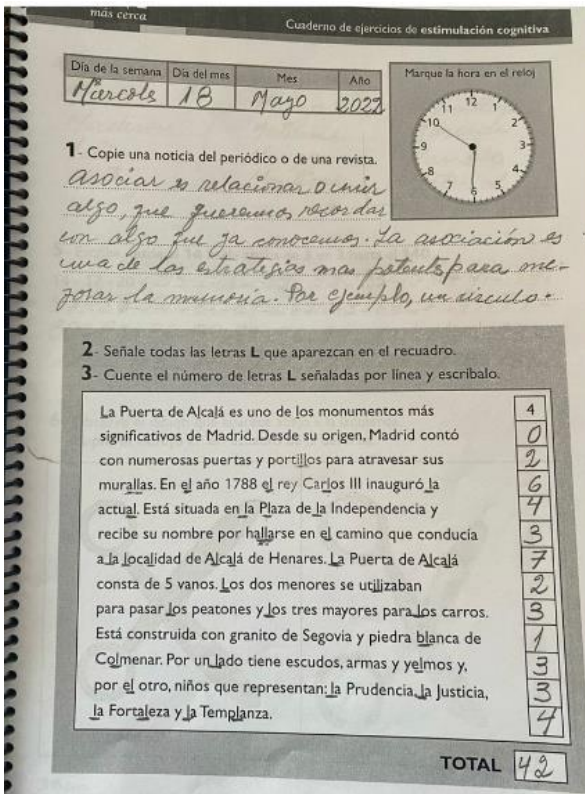 más cerca
Cuaderno de ejercicios de estimulación cognitiva
Día de la semana Día del mes Mes Año
Miercols 18 Mayo 2022
Marque la hora en el reloj
12 1 2 3 4 5 6 7 8 9 10 11
1- Copie una noticia del periódico o de una revista.
asociar es relacionar o unir
algo, que queremos recordar
con algo que ya conocemos. La asociación es
una de las estrategias mas potents para me-
jorar la memoria. Por ejemplo, un circulo.
2- Señale todas las letras L que aparezcan en el recuadro.
3- Cuente el número de letras L señaladas por línea y escríbalo.
La Puerta de Alcalá es uno de los monumentos más 4
significativos de Madrid. Desde su origen, Madrid contó 0
con numerosas puertas y portillos para atravesar sus 2
murallas. En el año 1788 el rey Carlos III inauguró la 6
actual. Está situada en la Plaza de la Independencia y 4
recibe su nombre por hallarse en el camino que conducía 3
a la localidad de Alcalá de Henares. La Puerta de Alcalá 7
consta de 5 vanos. Los dos menores se utilizaban 2
para pasar los peatones y los tres mayores para los carros. 3
Está construida con granito de Segovia y piedra blanca de 1
Colmenar. Por un lado tiene escudos, armas y yelmos y, 3
por el otro, niños que representan: la Prudencia, la Justicia, 3
la Fortaleza y la Templanza. 4
TOTAL 42